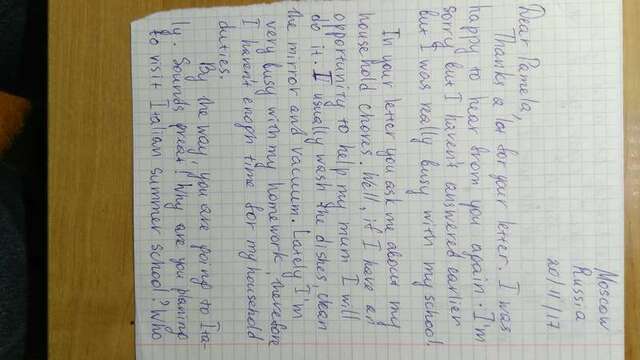 Moscow
Russia
20/11/17
Dear Pamela,
Thanks a lot for your letter. I was
happy to hear from you again. I'm
sorry but I haven't answered earlier
but I was really busy with my school.
In your letter you ask me about my
household chores. Well, if I have an
opportunity to help my mum I will
do it. I usually wash the dishes, clean
the mirror and vacuum. Lately I'm
very busy with my homework, therefore
I haven't enogh time for my household
duties.
By the way, you are going to Ita-
ly. Sounds great! Why are you planing
to visit Italian summer school? Who